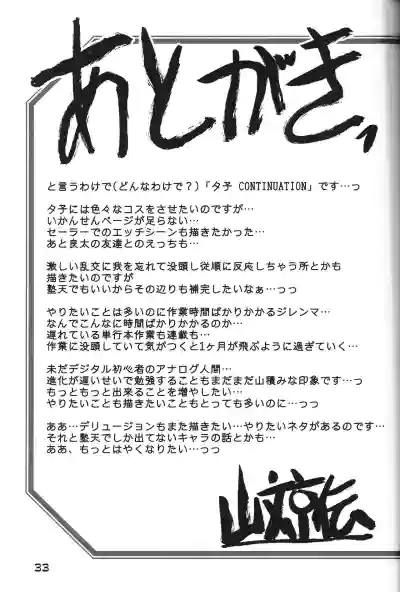 あとがき、
と言うわけで(どんなわけで?)「タ子 CONTINUATION」です…っ
タ子には色々なコスをさせたいのですが…
いかんせんページが足らない…
セーラーでのエッチシーンも描きたかった…
あと良太の友達とのえっちも…
激しい乱交に我を忘れて没頭し従順に反応しちゃう所とかも
描きたいのですが
塾天でもいいからその辺りも補完したいなぁ…っっ
やりたいことは多いのに作業時間ばかりかかるジレンマ…
なんでこんなに時間ばかりかかるのか…
遅れている単行本作業も連載も…
作業に没頭していて気がつくと1ヶ月が飛ぶように過ぎていく…
未だデジタル初心者のアナログ人間…
進化が遅いせいで勉強することもまだまだ山積みな印象です…っ
もっともっと出来ることを増やしたい…
やりたいことも描きたいこともとっても多いのに…っっ
ああ…デリュージョンもまた描きたい…やりたいネタがあるのです…
それと塾天でしか出てないキャラの話とかも…
ああ、もっとはやくなりたい…っっ
山文京伝
33